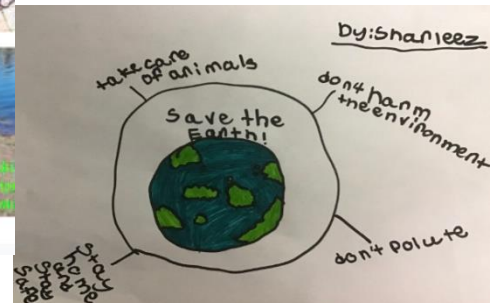 by:Shanleez
take care
of animals
don't harm
the environment
Save the
Earth!
don't polute
stay
home
and
stay
safe